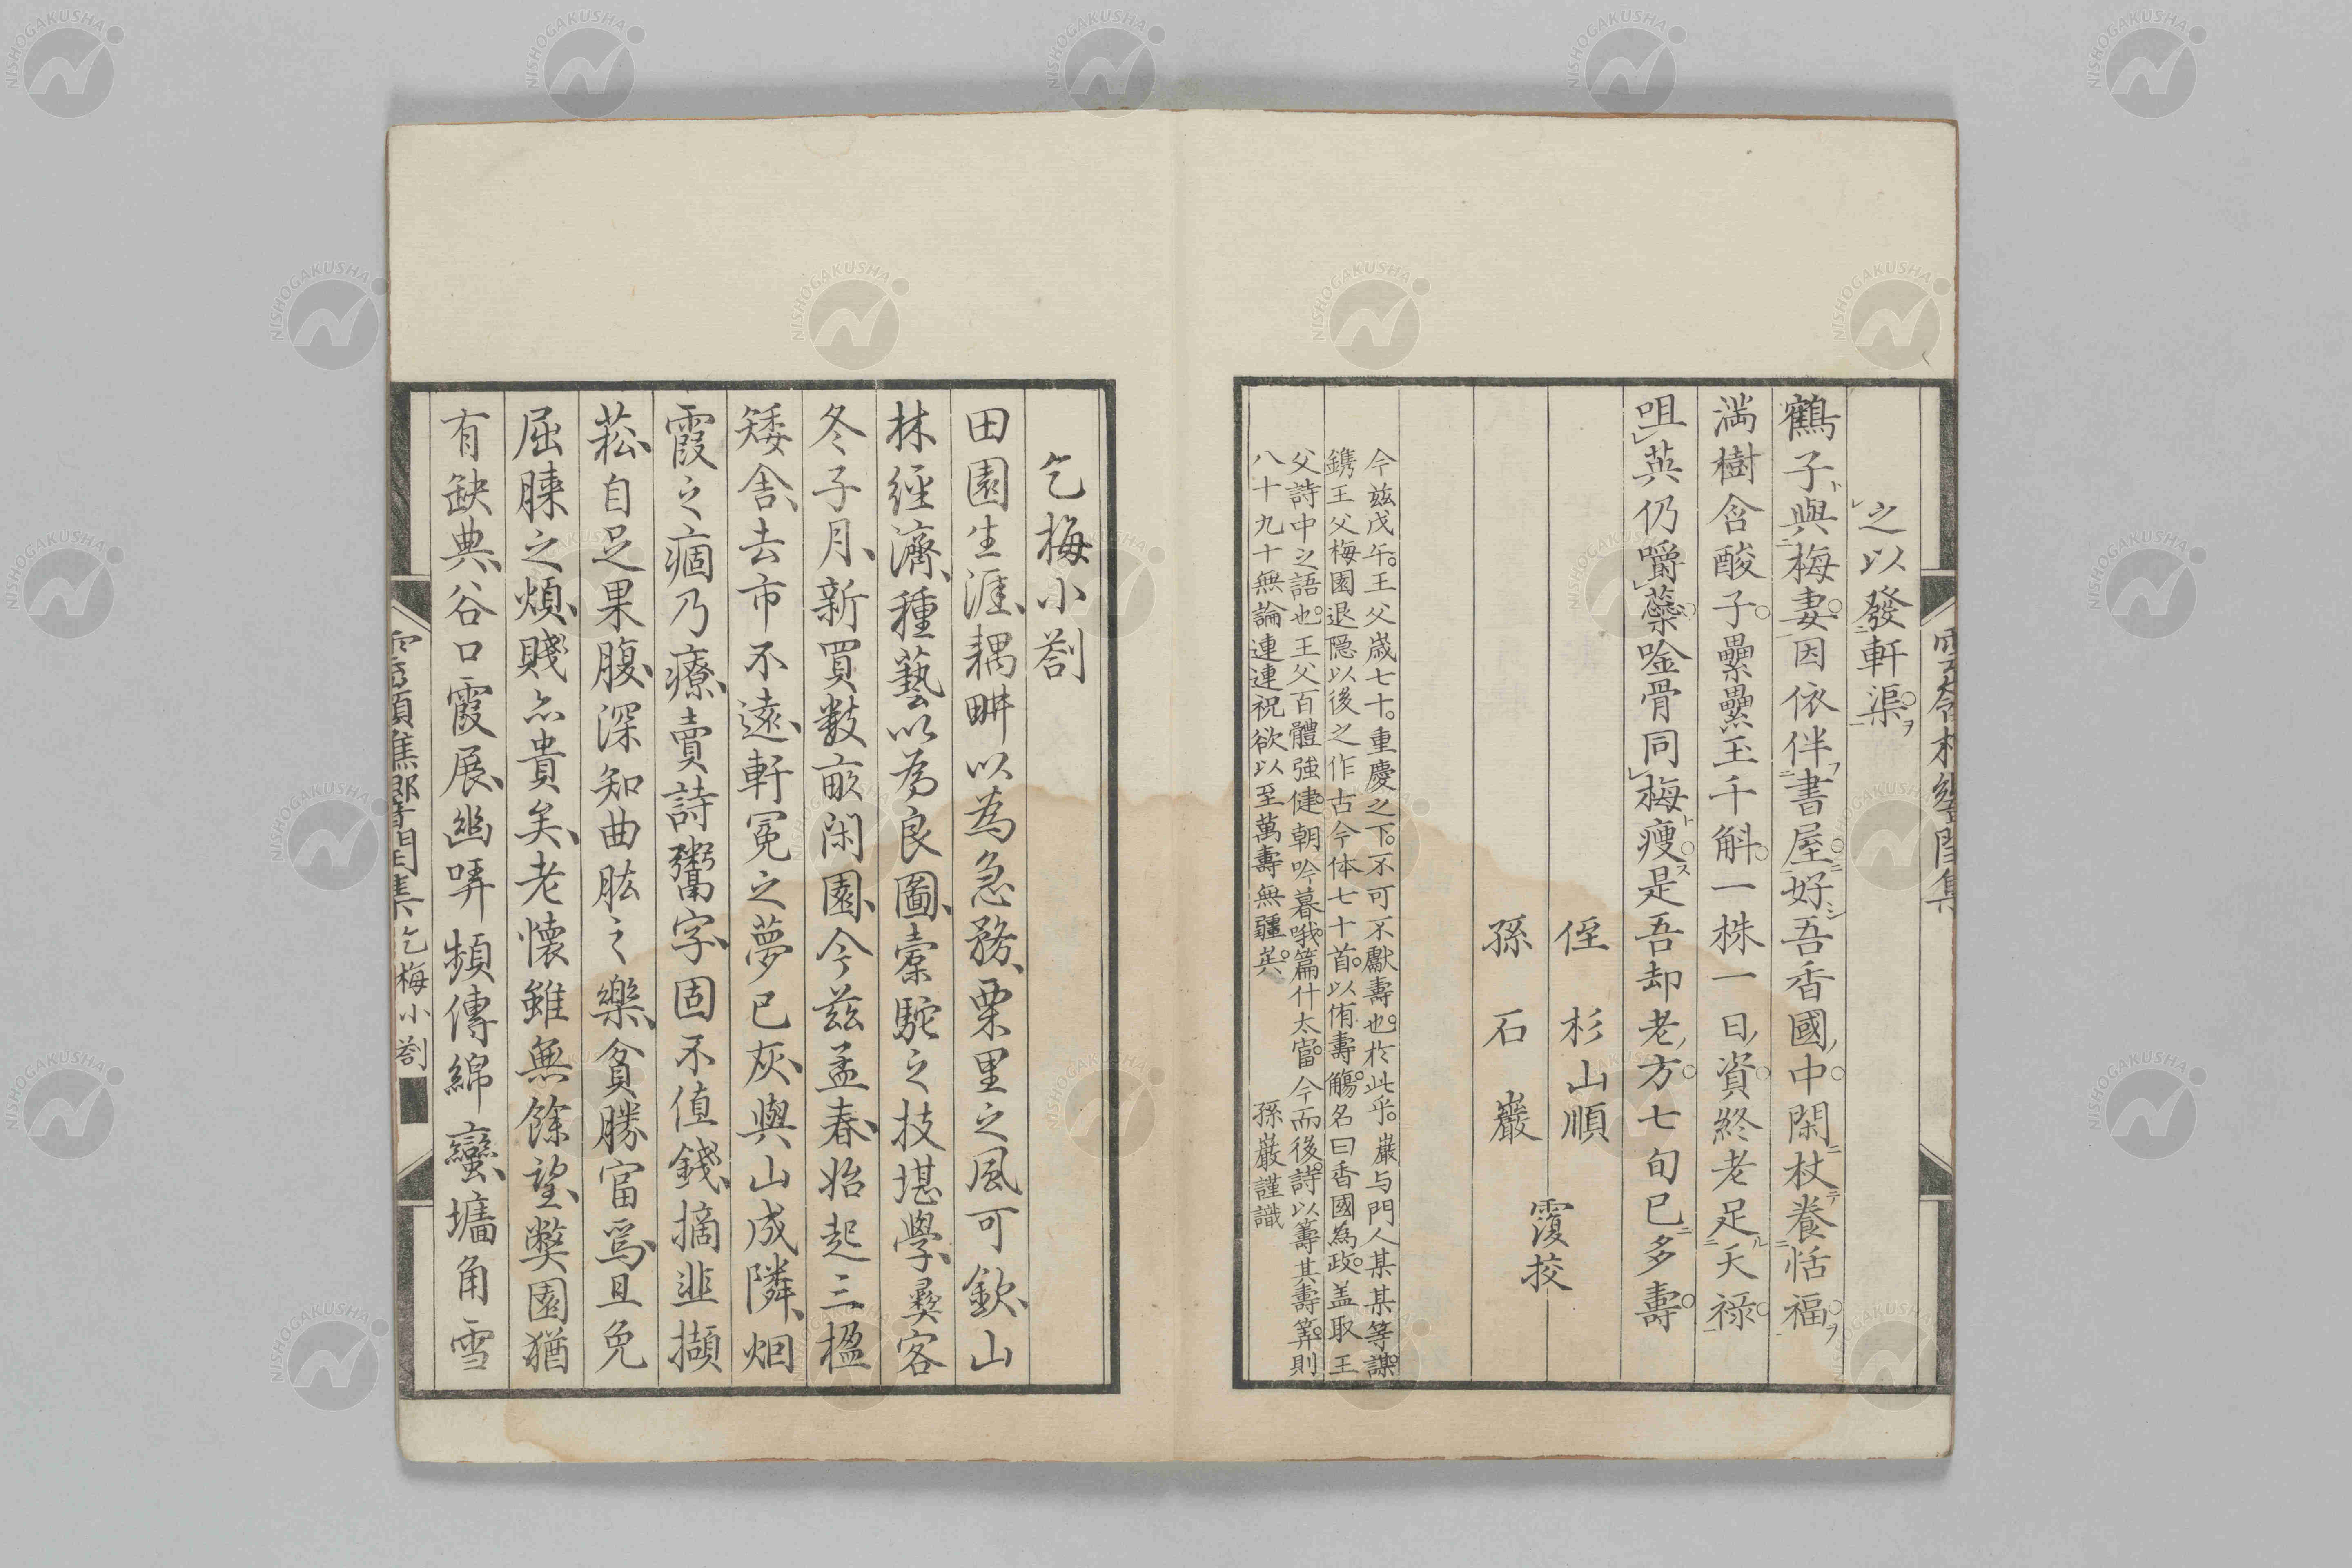 之以發軒渠
鶴子與梅妻因依伴書屋好吾香國中閑杖養恬福
満樹含酸子纍纍玉千斛一株一日資終老足天祿
咀英仍嚼蘂唫骨同梅瘦是吾却老方七旬已多壽
侄 杉山順
孫 石 巖
覆挍
今茲戊午。王父歲七十。重慶之下。不可不獻壽也。於此乎。巖与門人某某等謀。
鐫王父梅園退隠以後之作古今体七十首。以侑壽觴。名曰香國為政。盖取王
父詩中之語也。王父百體強健。朝吟暮哦。篇什太富。今而後。詩以籌其壽筭。則
八十九十無論。連連祝欲以至萬壽無疆矣。 孫巖謹識
乞梅小劄
田園生涯、耦畊以為急務、栗里之風可欽、山
林經濟、種藝以為良圖、橐駝之技堪學、㬥客
冬子月、新買數畝閑園、今茲孟春、始起三楹
矮舍、去市不遠、軒冕之夢已灰、與山成隣、烟
霞之痼乃療、賣詩鬻字、固不值錢、摘韭擷
菘、自足果腹、深知曲肱之樂、貧勝富焉、且免
屈膝之煩、賤亦貴矣、老懷雖無餘望、獘園猶
有缺典、谷口霞展、幽哢頻傳綿蠻、墻角雪
乞梅小劄